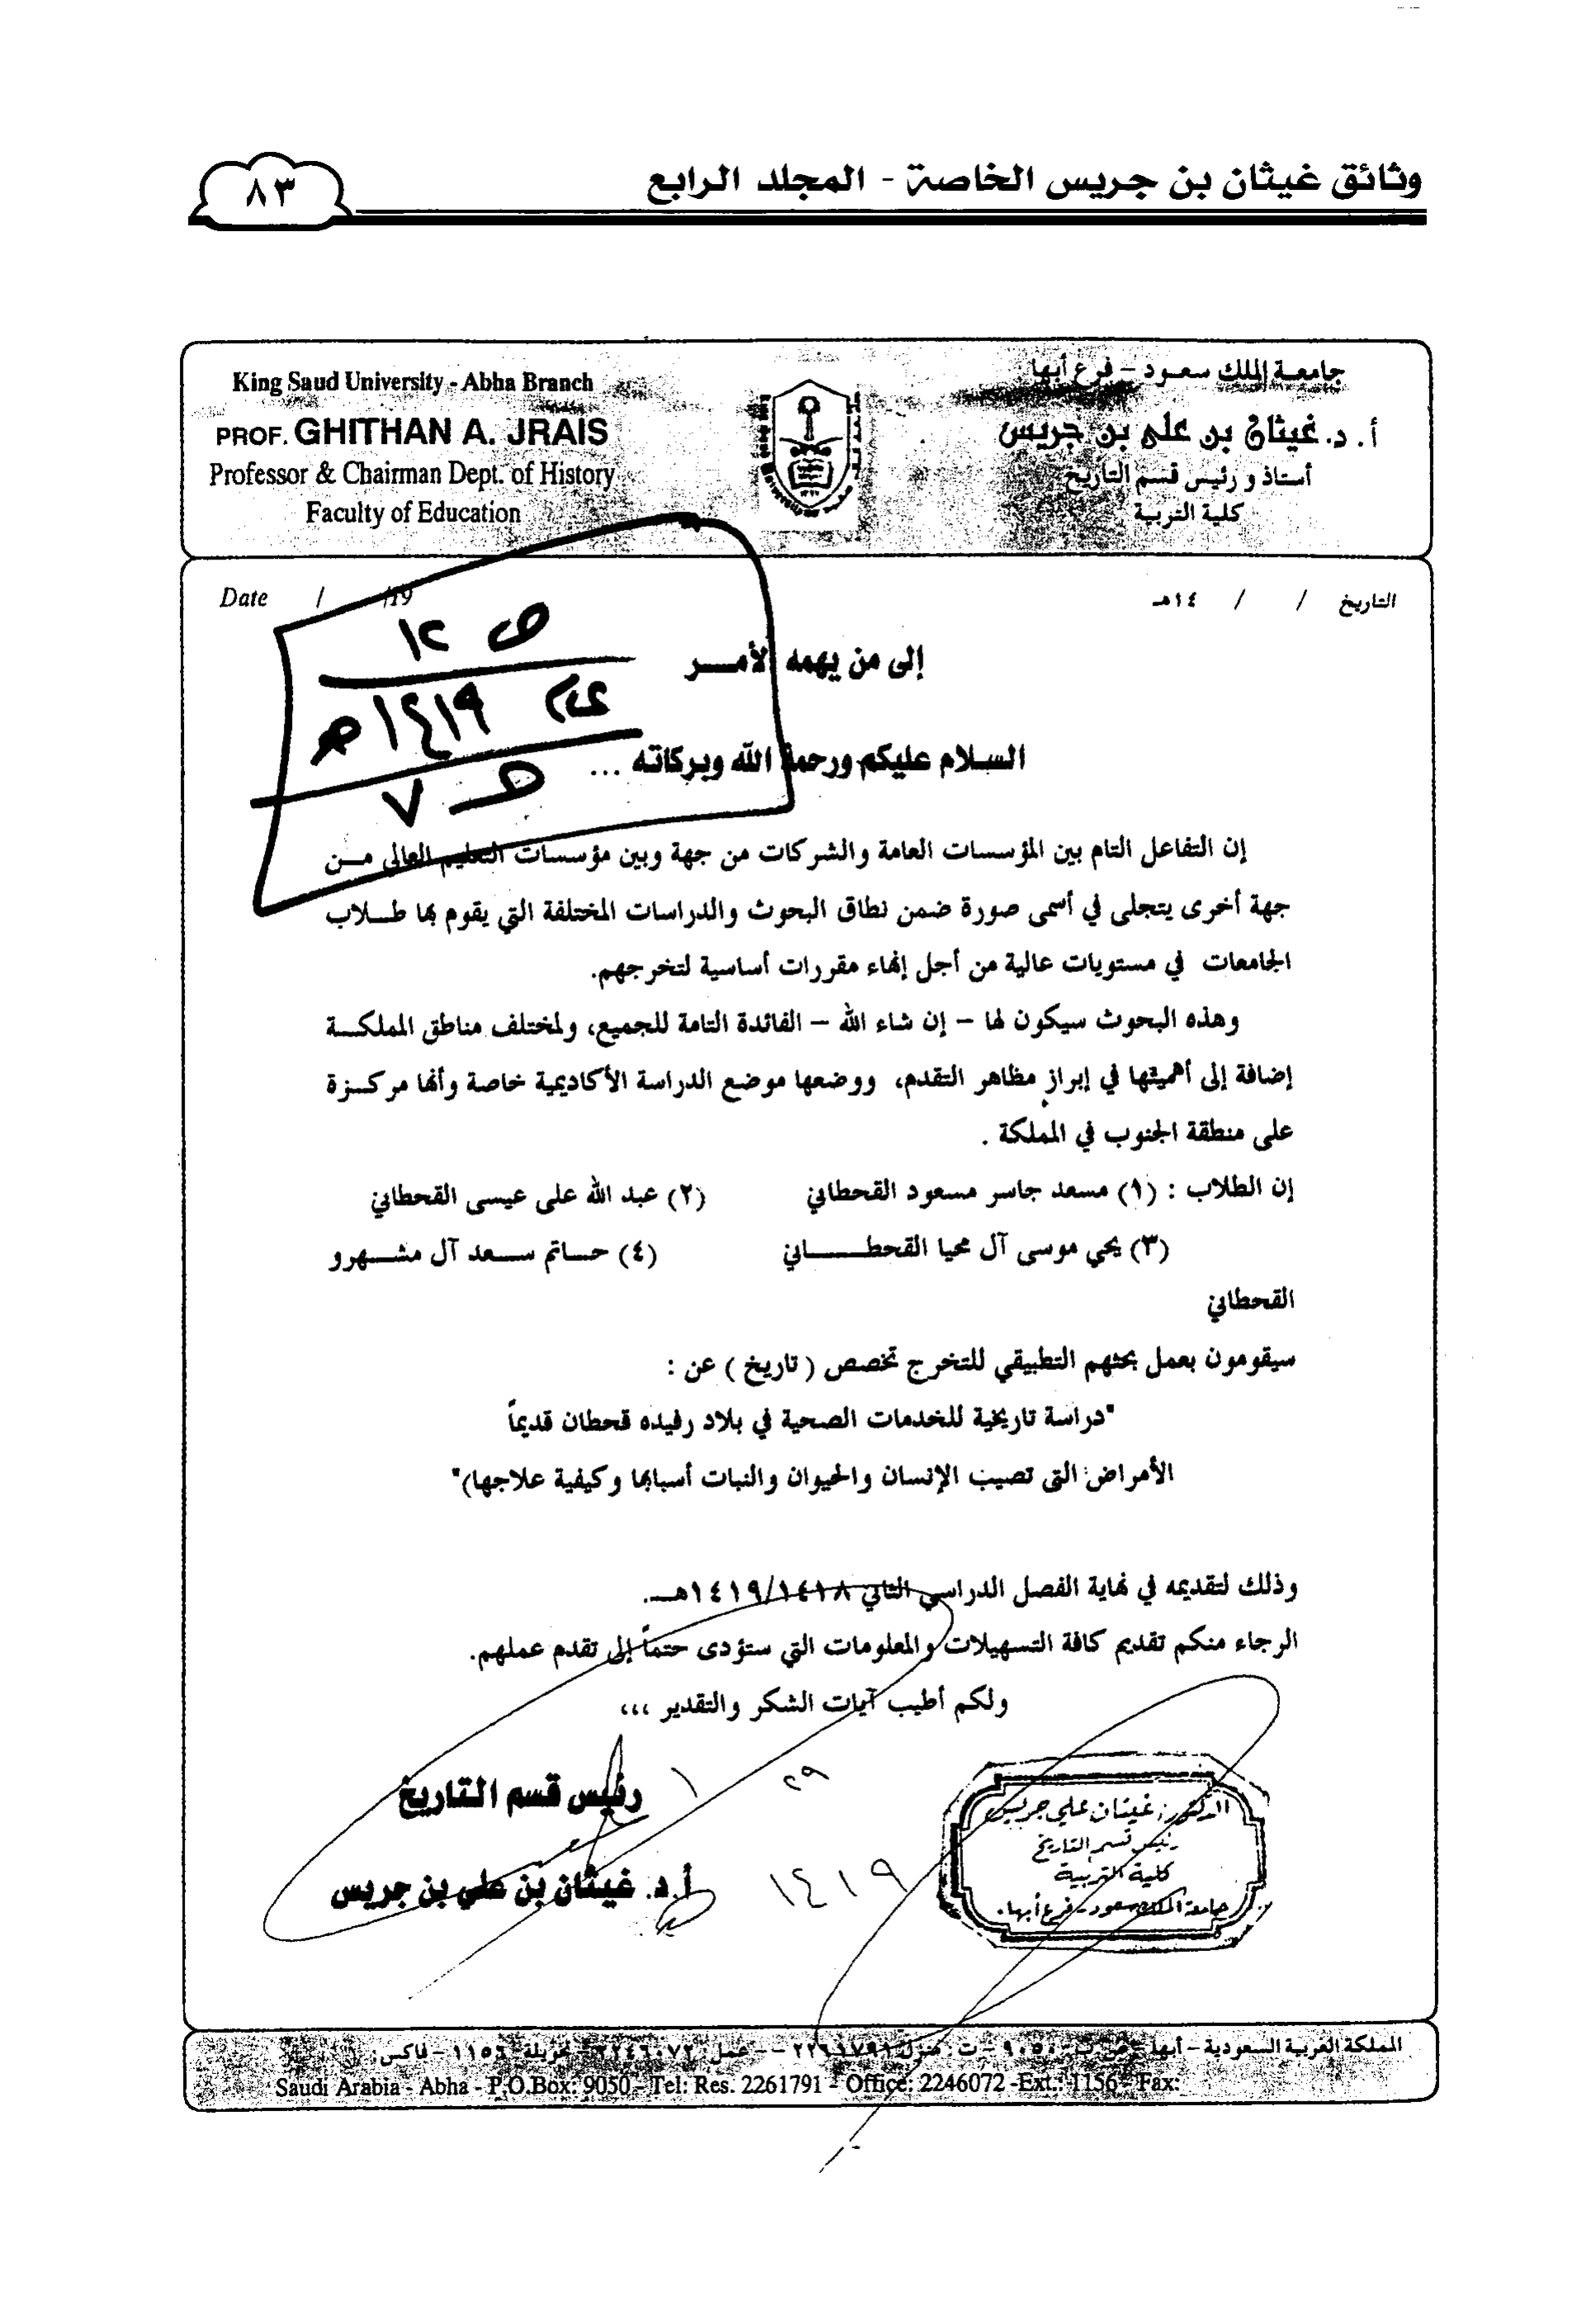 وثائق غيثان بن جريس الخاصة - المجلد الرابع
٨٣
King Saud University - Abha Branch
PROF. GHITHAN A. JRAIS
Professor & Chairman Dept. of History
Faculty of Education
جامعة الملك سعود - فرع أبها
أ. د. غيثان بن علي بن جريس
أستاذ و رئيس قسم التاريخ
كلية التربية
Date / /19
التاريخ / / ١٤هـ
ص ١٢
١٤١٩هـ
إلى من يهمه الأمـــر
السلام عليكم ورحمة الله وبركاته ...
إن التفاعل التام بين المؤسسات العامة والشركات من جهة وبين مؤسسات التعليم العالي مـن
جهة أخرى يتجلى في أسمى صورة ضمن نطاق البحوث والدراسات المختلفة التي يقوم بها طــلاب
الجامعات في مستويات عالية من أجل إنهاء مقررات أساسية لتخرجهم.
وهذه البحوث سيكون لها – إن شاء الله – الفائدة التامة للجميع، ولمختلف مناطق المملكـة
إضافة إلى أهميتها في إبراز مظاهر التقدم، ووضعها موضع الدراسة الأكاديمية خاصة وأنها مركـزة
على منطقة الجنوب في المملكة .
إن الطلاب : (١) مسعد جاسر مسعود القحطاني (٢) عبد الله على عيسى القحطاني
(٣) يحي موسى آل محيا القحطـــــاني (٤) حــاتم ســعد آل مشــهرو
القحطاني
سيقومون بعمل بحثهم التطبيقي للتخرج تخصص ( تاريخ ) عن :
"دراسة تاريخية للخدمات الصحية في بلاد رفيده قحطان قديماً
الأمراض التى تصيب الإنسان والحيوان والنبات أسبابها وكيفية علاجها)"
وذلك لتقديمه في نهاية الفصل الدراسي الثاني ١٤١٩/١٤١٨هــ.
الرجاء منكم تقديم كافة التسهيلات والمعلومات التي ستؤدى حتماً إلى تقدم عملهم.
ولكم أطيب آيات الشكر والتقدير ،،،
رئيس قسم التاريخ
٢٩ ١
١٤١٩
أ.د. غيثان بن علي بن جريس
الدكتور: غيثان علي جريس
رئيس قسم التاريخ
كلية التربية
جامعة الملك سعود - فرع أبها.
المملكة العربية السعودية - أبها - ص.ب - ٩٠٥٠ - ت: منزل ٢٢٦١٧٩١ - عمل: ٢٢٤٦٠٧٢ - تحويلة ١١٥٦ - فاكس:
Saudi Arabia - Abha - P.O.Box: 9050 - Tel: Res. 2261791 - Office: 2246072 -Ext.: 1156 - Fax: